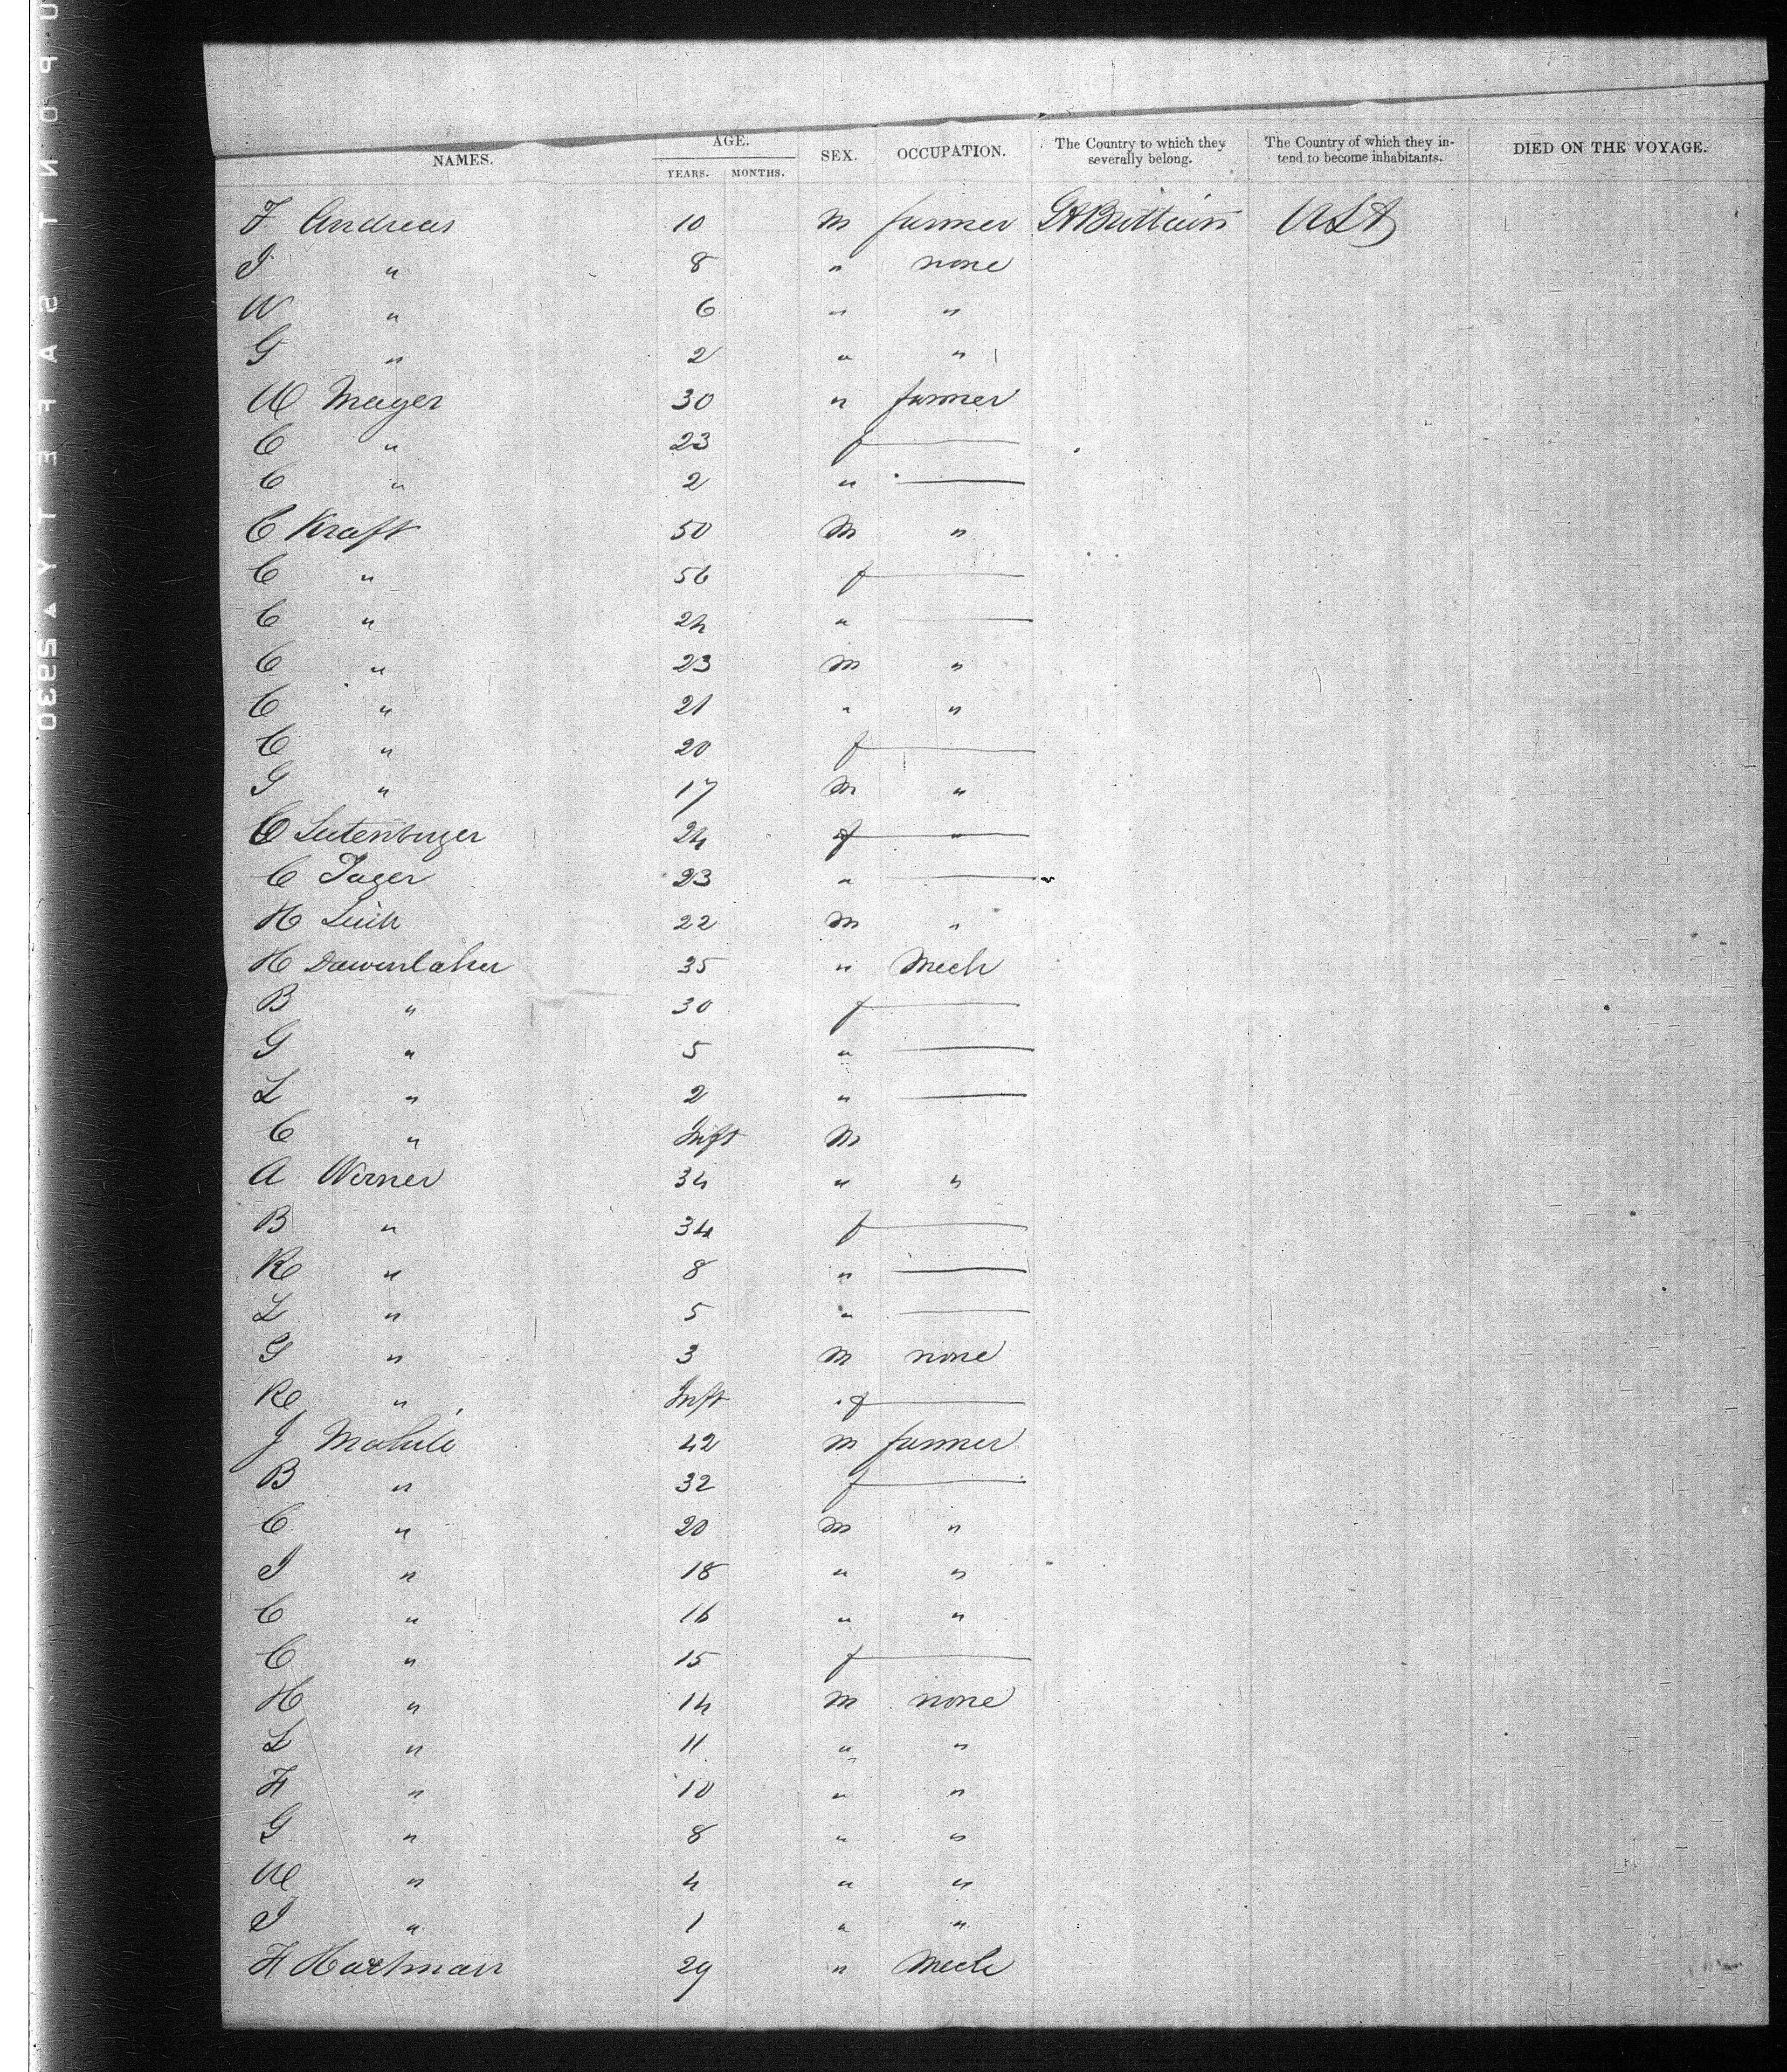 NAMES. AGE. YEARS. MONTHS. SEX. OCCUPATION. The Country to which they severally belong. The Country of which they in-tend to become inhabitants. DIED ON THE VOYAGE.
F Andreas 10 m farmer Gt Brittain USA
J " 8 " none
W " 6 " "
G " 2 " "
M Mayer 30 " farmer
C " 23 f
C " 2 "
C Kraft 50 m "
C " 56 f
C " 24 "
C " 23 m "
C " 21 " "
C " 20 f
G " 17 m "
C Leitenburger 24 f "
C Jager 23 "
H 22 m "
H 35 " Mech
B " 30 f
G " 5 "
L " 2 "
C " Inft m
A Werner 34 " "
B " 34 f
R " 8 "
L " 5 "
G " 3 m none
R " Inft f
J 42 m farmer
B " 32 f
C " 20 m "
J " 18 " "
C " 16 " "
C " 15 f
H " 14 m none
L " 11 " "
F " 10 " "
G " 8 " "
M " 4 " "
J " 1 " "
F Hartman 29 " Mech
SAFETY 5930